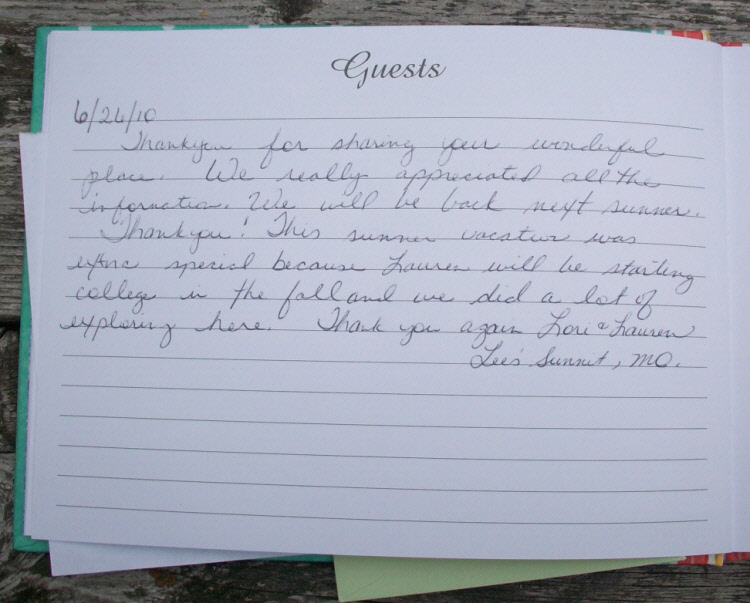 Guests
6/26/10
Thankyou for sharing your wonderful
place. We really appreciated all the
information. We will be back next summer.
Thankyou! This summer vacation was
extra special because Lauren will be starting
college in the fall and we did a lot of
exploring here. Thank you again Lori & Lauren
Lee's Summit, MO.